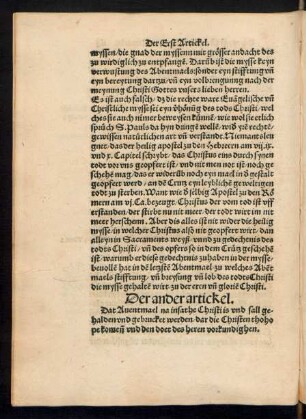 Der Erst Artickel.
myssen/die gnad der myssenn mit grösser andacht des
zu wirdiglich zu empfangē. Darūb ist die mysse keyn
verwustung des Abentmaels: sonder eyn stifftung vñ
eyn bereytung darzu/vñ eyn volbringunng nach der
meynung Christi Gottes vnsers lieben herren.
Es ist auch falsch/dz die rechte ware Euāgelische vñ
Christliche mysse ist eyn v̈höñg des tods Christi/wie
sie es auch nicht nimer beweysen künnē/wie wol sie etlich
sprüch S. Pauls da hyn dringē wellē/wid' yñ rechte-
gewyssen natürlichen art vñ verstand. Niemants len
gnet/das der heilig apostel zu den Hebreern am vij.ix.
vnd x. Capitel schrybt/das Christus eins durch synen
tod vor vns geopffert ist/vnd nit men not ist noch ge
schehē mag/das er widerūb noch eyn mael in d' gestalt
geopfert werd/an dē Crutz eyn leyblichē gewelnigen
todt zu sterben. Wāre wie d' selbig Apostel zu den Rö
mern am vj.Ca.bezeugt. Christus der vom tod ist vff
erstanden/der stirbt nu nit meer/der todt wirt im nit
meer herschenn. Aber dis als nit ist wider die heilig
mysse/in welcher Christus also nit geopfert wirt/dan
alleyn in Sacraments weyß/vnd zu gedechtnis des
todes Christi/vñ des opfers so in dem Crütz geschehē
ist/warumb er diese gedechtnis zu haben in der mysse
beuolē hat in dē letzstē Abentmael/zu welches Abēt
maels stifftung/vñ breysung vñ lob des tods Christi
die mysse gehaltē wirt/zu der eren vñ glorie Christi.
Der ander artickel.
Dat Auentmael na insathe Christi is vnd sall ge-
halden vnd gebrucket werden/dar die Christen thoho
pe komeñ vnd den doet des heren vorkundighen.